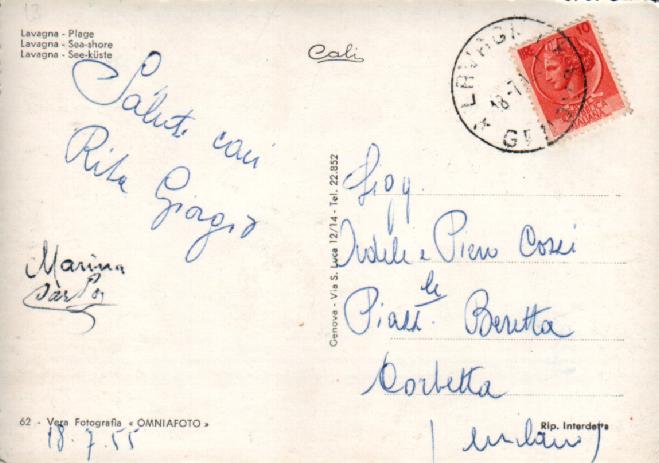 Lavagna - Plage
Lavagna - Sea-shore
Lavagna - See-küste
Cali
LAVAGNA
18-7
GEN
10
ITALIANA
Saluti cari
Rita Giorgio
Marina
Genova - Via S. Luca 12/14 - Tel. 22.852
Sigg.
Adele e Piero Cossi
Piazz.le Beretta
Corbetta
(Milano)
62 - Vera Fotografia « OMNIAFOTO »
Rip. Interdetta
18.7.55